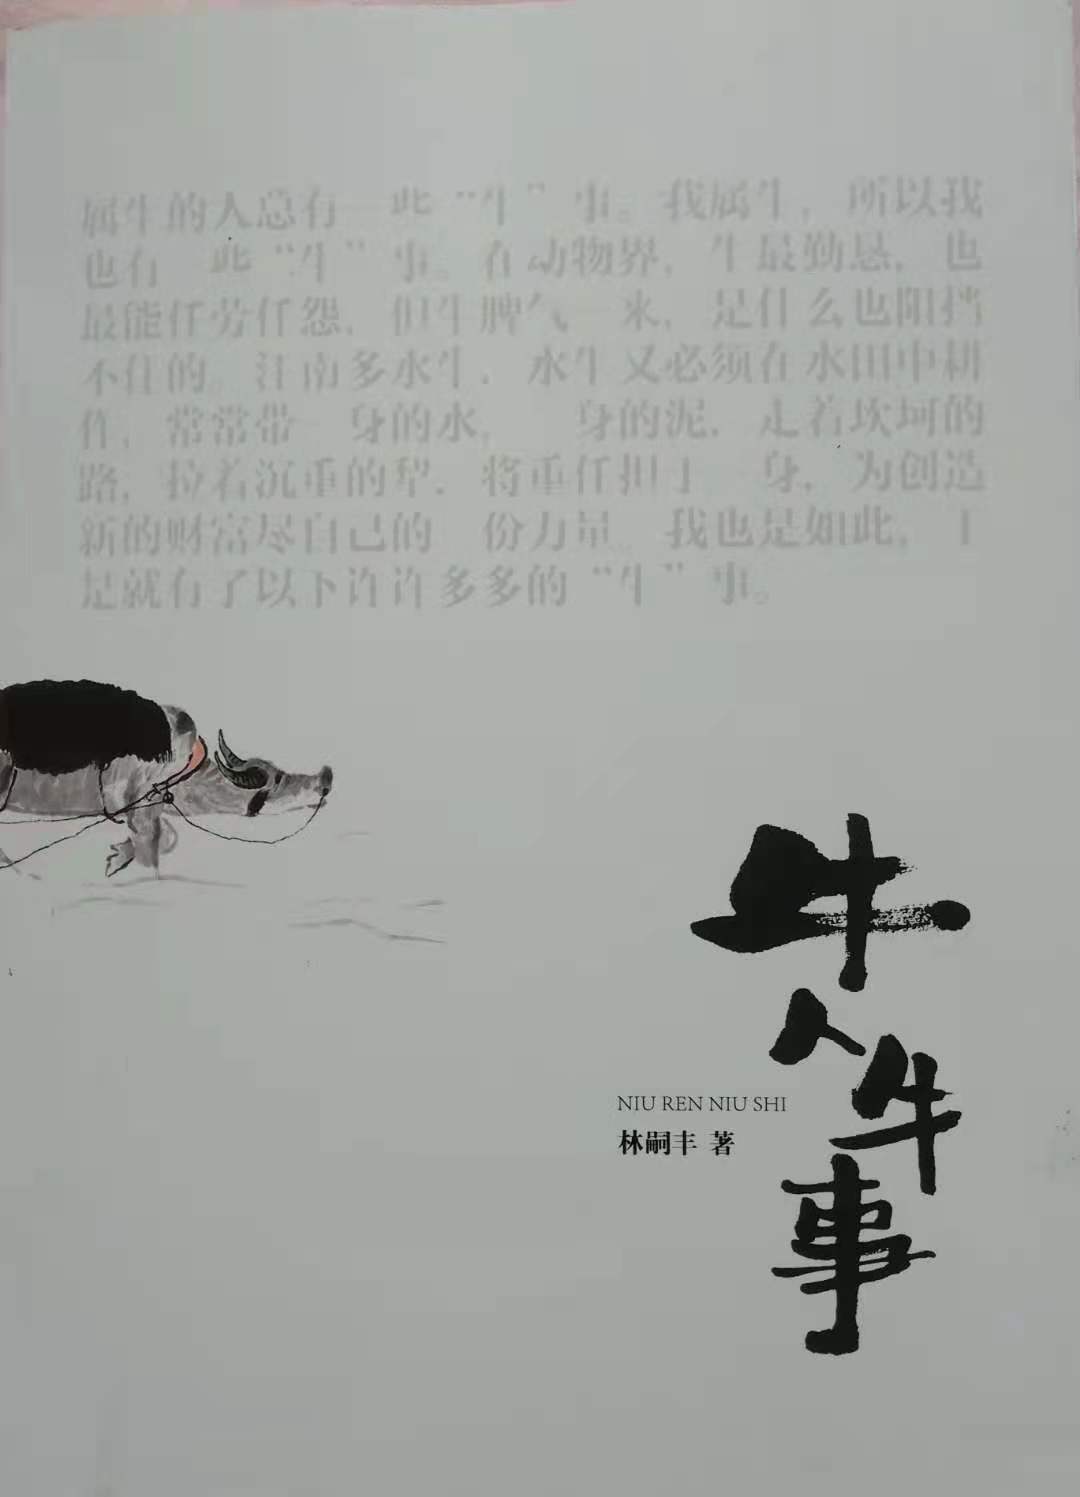 属牛的人总有一些“牛”事。我属牛，所以我
也有一些“牛”事。在动物界，牛最勤恳，也
最能任劳任怨，但牛脾气一来，是什么也阻挡
不住的。江南多水牛，水牛又必须在水田中耕
作，常常带一身的水，一身的泥，走着坎坷的
路，拉着沉重的犁，将重任担于一身，为创造
新的财富尽自己的一份力量。我也是如此，于
是就有了以下许许多多的“牛”事。
牛人牛事
NIU REN NIU SHI
林嗣丰 著